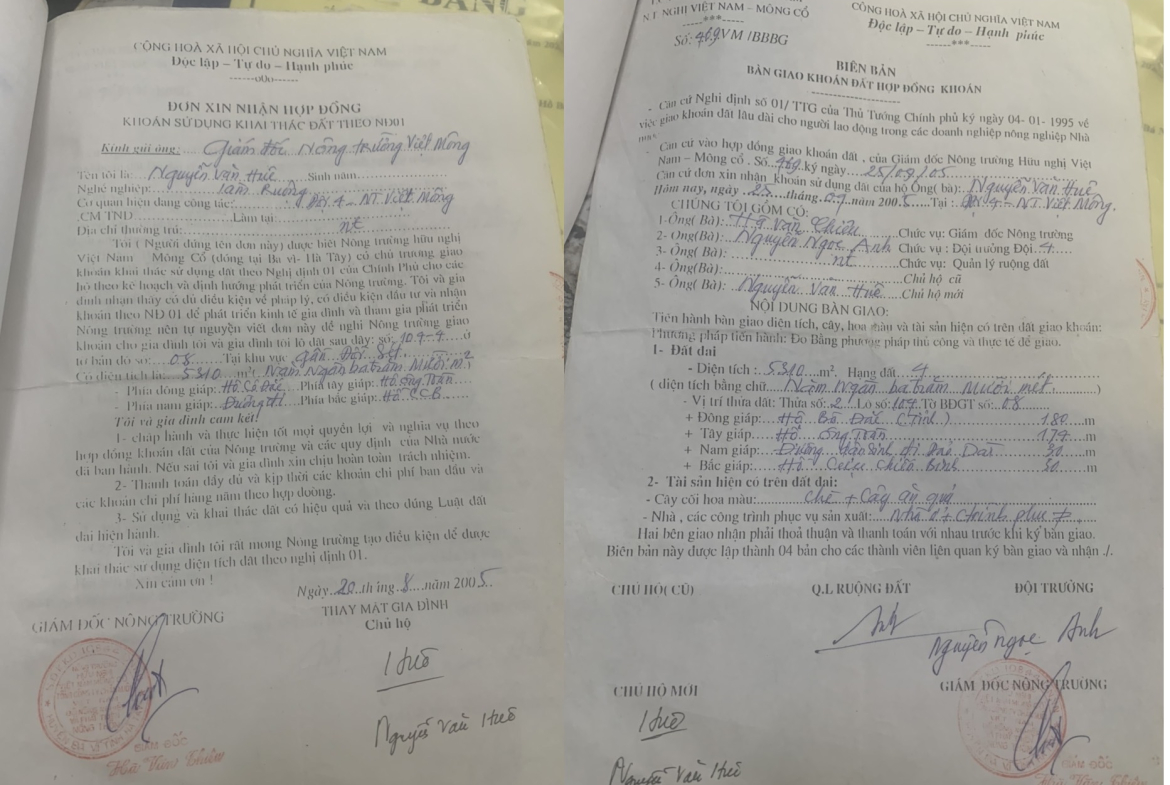 CÔNG HOÀ XÃ HỘI CHỦ NGHĨA VIỆT NAM
Độc lập – Tự do – Hạnh phúc
------o0o------
ĐƠN XIN NHẬN HỢP ĐỒNG
KHOÁN SỬ DỤNG KHAI THÁC ĐẤT THEO NĐ01
Kính gửi ông: Giám đốc Nông trường Việt Mông
Tên tôi là: Nguyễn Văn Huê Sinh năm
Nghề nghiệp: làm Ruộng
Cơ quan hiện đang công tác: Đội 4 - NT Việt Mông
CM TND Làm tại:
Địa chỉ thường trú: nt
Tôi ( Người đứng tên đơn này) được biết Nông trường hữu nghị
Việt Nam Mông Cổ (đóng tại Ba vì- Hà Tây) có chủ trương giao
khoán khai thác sử dụng đất theo Nghị định 01 của Chính Phủ cho các
hộ theo kế hoạch và định hướng phát triển của Nông trường. Tôi và gia
đình nhận thấy có đủ điều kiện về pháp lý, có điều kiện đầu tư và nhận
khoán theo NĐ 01 để phát triển kinh tế gia đình và tham gia phát triển
Nông trường nên tự nguyện viết đơn này đề nghị Nông trường giao
khoán cho gia đình tôi và gia đình tôi lô đất sau đây: số: ở
tờ bản đồ số: 08 Tại khu vực gần Đội
Có diện tích là: 5310 m² (Năm Ngàn ba trăm Mười m²
- Phía đông giáp: Hộ Phía tây giáp: Hộ ông Toàn
- Phía nam giáp: Đường Phía bắc giáp: Hộ CCB
Tôi và gia đình cam kết!
1- chấp hành và thực hiện tốt mọi quyền lợi và nghĩa vụ theo
hợp đồng khoán đất của Nông trường và các quy định của Nhà nước
đã ban hành. Nếu sai tôi và gia đình xin chịu hoàn toàn trách nhiệm.
2- Thanh toán đầy đủ và kịp thời các khoản chi phí ban đầu và
các khoản chi phí hàng năm theo hợp đồng.
3- Sử dụng và khai thác đất có hiệu quả và theo đúng Luật đất
đai hiện hành.
Tôi và gia đình tôi rất mong Nông trường tạo điều kiện để được
khai thác sử dụng diện tích đất theo nghị định 01.
Xin cảm ơn !
Ngày 20 tháng 8 năm 2005
GIÁM ĐỐC NÔNG TRƯỜNG
THAY MẶT GIA ĐÌNH
Chủ hộ
Huê
Nguyễn Văn Huê
GIÁM ĐỐC
Hà Văn Chiều
N.T NGHỊ VIỆT NAM – MÔNG CỔ
***
Số: 469 VM /BBBG
CÔNG HOÀ XÃ HỘI CHỦ NGHĨA VIỆT NAM
Độc lập – Tự do – Hạnh phúc
-----***-----
BIÊN BẢN
BÀN GIAO KHOÁN ĐẤT HỢP ĐỒNG KHOÁN
- Căn cứ Nghị định số 01/ TTG của Thủ Tướng Chính phủ ký ngày 04- 01- 1995 về
việc giao khoán đất lâu dài cho người lao động trong các doanh nghiệp nông nghiệp Nhà
Căn cứ vào hợp đồng giao khoán đất , của Giám đốc Nông trường Hữu nghị Việt
Nam – Mông cổ . Số 469 ký ngày 25/09/05
Căn cứ đơn xin nhận khoán sử dụng đất của hộ Ông( bà): Nguyễn Văn Huê
Hôm nay, ngày 25 tháng 09 năm 2005 Tại : Đội 4 - NT Việt Mông.
CHÚNG TÔI GỒM CÓ:
1-Ông( Bà): Hà Văn Chiều Chức vụ: Giám đốc Nông trường
2- Ông(Bà): Nguyễn Ngọc Anh Chức vụ : Đội trưởng Đội 4
3- Ông(Bà): nt Chức vụ: Quản lý ruộng đất
4- Ông(Bà): Chủ hộ cũ
5- Ông( Bà): Nguyễn Văn Huê Chủ hộ mới
NỘI DUNG BÀN GIAO:
Tiến hành bàn giao diện tích, cây, hoa màu và tài sản hiện có trên đất giao khoán:
Phương pháp tiến hành: Đo Bằng phương pháp thủ công và thực tế để giao.
1- Đất đai
- Diện tích : 5310 m². Hạng đất 4
( diện tích bằng chữ Năm Ngàn ba trăm Mười mét. )
- Vị trí thửa đất: Thửa số: 2 Lô số: 109 Tờ BĐGT số: 08
+ Đông giáp: Hộ 180 m
+ Tây giáp: Hộ ông Toàn 174 m
+ Nam giáp: Đường 30 m
+ Bắc giáp: Hộ Cựu Chiến Binh 30 m
2- Tài sản hiện có trên đất đai:
- Cây cối hoa màu: Chè + Cây ăn quả
- Nhà , các công trình phục vụ sản xuất: Nhà ở +
Hai bên giao nhận phải thoả thuận và thanh toán với nhau trước khi ký bàn giao.
Biên bản này được lập thành 04 bản cho các thành viên liên quan ký bàn giao và nhận ./.
CHỦ HỘ( CŨ)
Q.L RUỘNG ĐẤT
ĐỘI TRƯỞNG
Nguyễn Ngọc Anh
CHỦ HỘ MỚI
GIÁM ĐỐC NÔNG TRƯỜNG
Huê
Nguyễn Văn Huê
GIÁM ĐỐC
Hà Văn Chiều